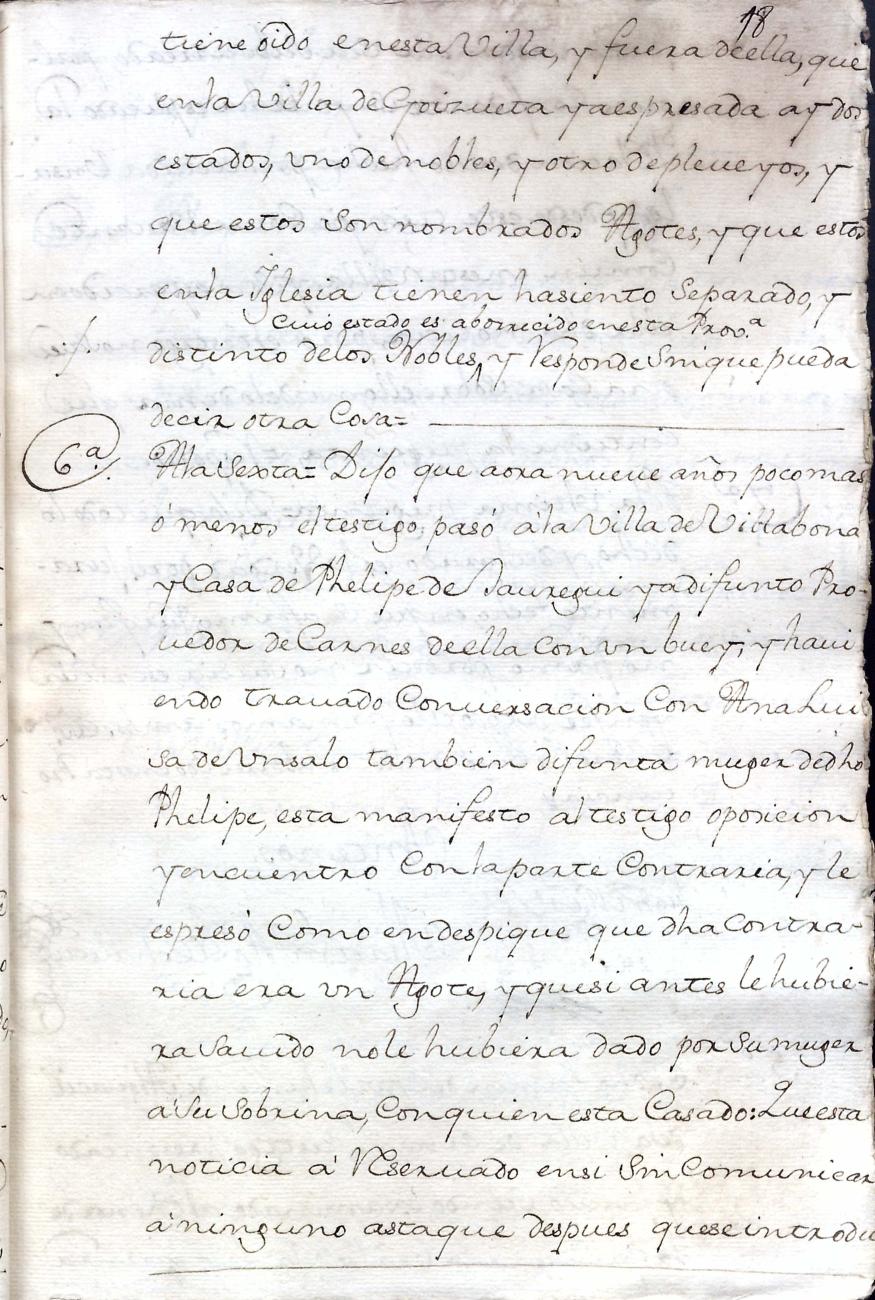 18
tiene oido en esta Villa, y fuera de ella, que
en la Villa de Goizueta ya espresada ay dos
estados, uno de nobles, y otro de pleveyos, y
que estos son nombrados Agotes, y que estos
en la Iglesia tienen hasiento separado, y
cuio estado es aborrecido en esta Prov.ª
distinto de los Nobles, y Responde Sin que pueda
decir otra Cosa=
6ª. A la Sexta= Dijo que aora nueve años poco mas
ó menos el testigo, pasó à la Villa de Villabona
y Casa de Phelipe de Jauregui ya difunto Pro-
uedor de Carnes de ella con un buey; y haui
endo trauado Conuersacion Con Ana Lui
sa de Unsalo tambien difunta muger de dho
Phelipe, esta manifesto al testigo oposicion
y encuentro Con la parte Contraria, y le
espresò Como en despique que dha Contra-
ria era un Agote, y que si antes le hubie-
ra sauido no le hubiera dado por su muger
à su sobrina, Con quien esta Casado: Que esta
noticia à Reseruado en si Sin Comunicar
à ninguno asta que despues que se introdu